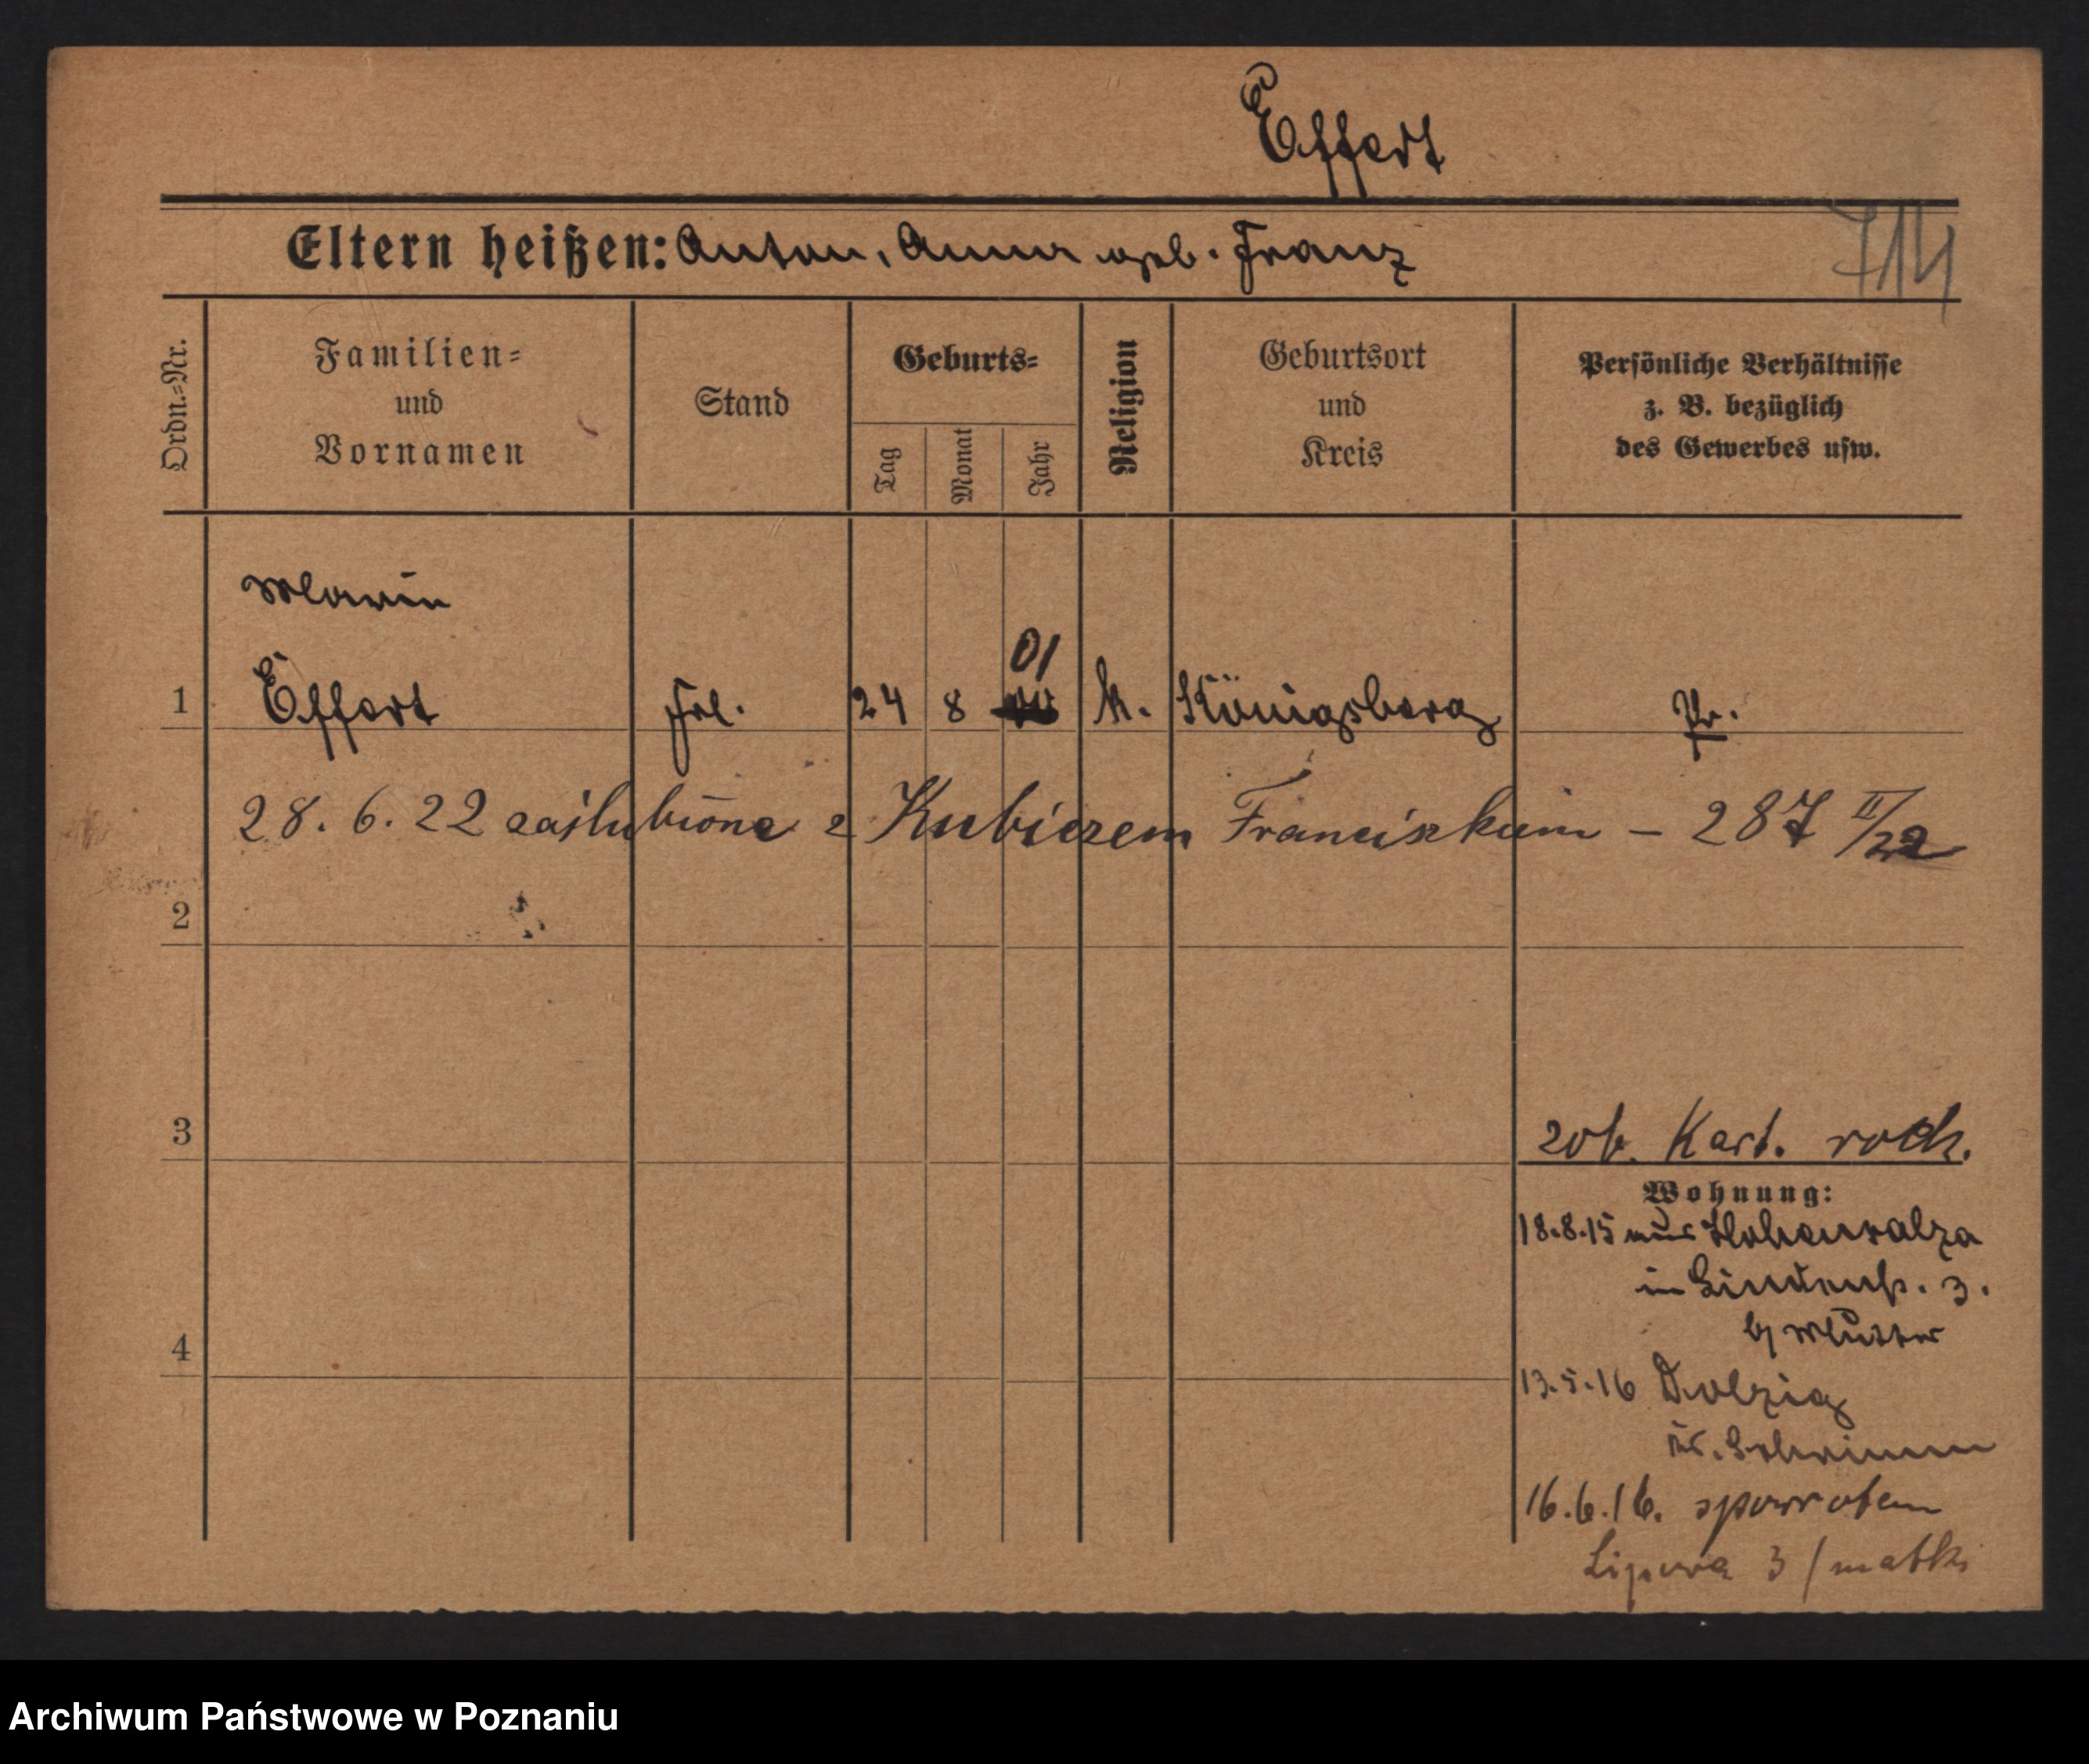 Effert
Eltern heißen: Anton, Anna geb. Franz
714
Ordn.=Nr.
Familien=
und
Vornamen
Stand
Geburts=
Tag
Monat
Jahr
Religion
Geburtsort
und
Kreis
Persönliche Verhältnisse
z. B. bezüglich
des Gewerbes usw.
Maria
01
1 Effert Frl. 24 8 k. Königsberg Pr.
28. 6. 22 zaślubiona z Kubiczem Franciszkiem – 287 II/22
2
3
zob. Kart. rodz.
Wohnung:
18.8.15 aus Hohensalza
in Lindenstr. 3.
b/ Mutter
4
13.5.16 Dolzig
Kr. Schrimm
16.6.16. spowrotem
Lipowa 3 / matki
Archiwum Państwowe w Poznaniu